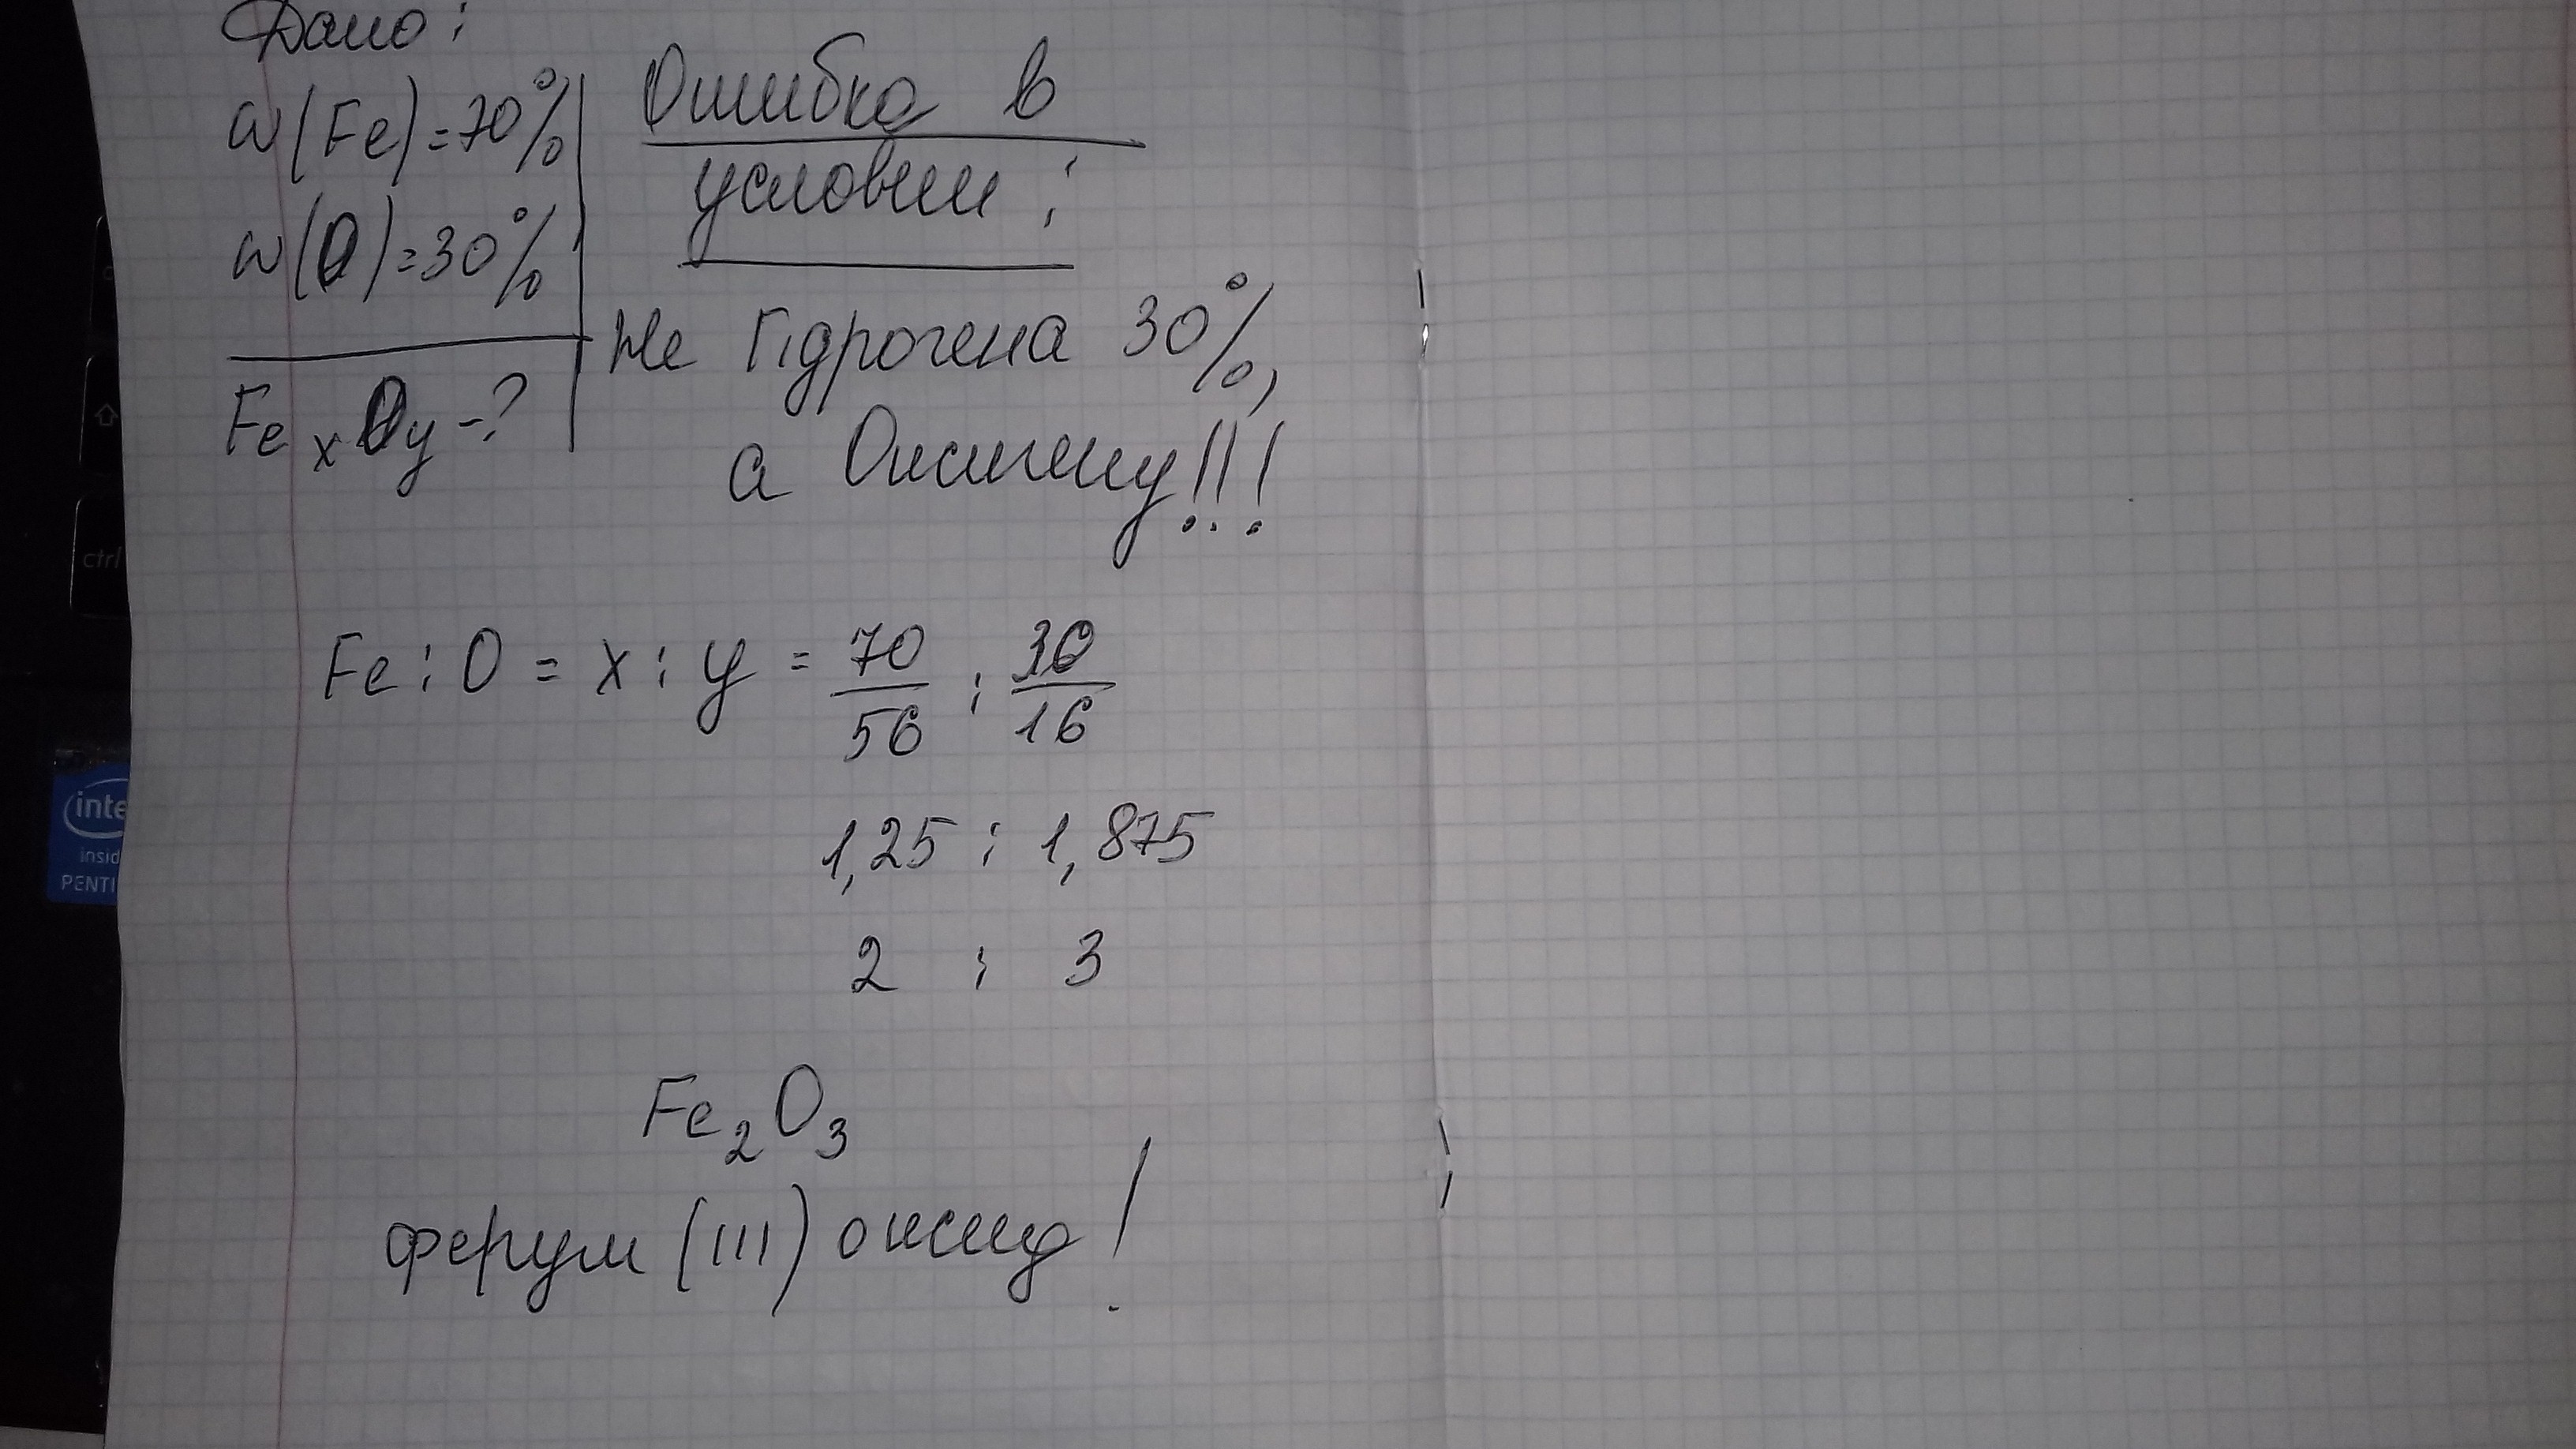 Дано:
w(Fe)=70%
w(O)=30%
FexOy-?
Ошибка в
условии:
Не Гідрогена 30%,
а Оксигену!!!
Fe : O = x : y = 70/56 : 30/16
1,25 : 1,875
2 : 3
Fe2O3
ферум (III) оксид!
ctrl
inte
insid
PENTI